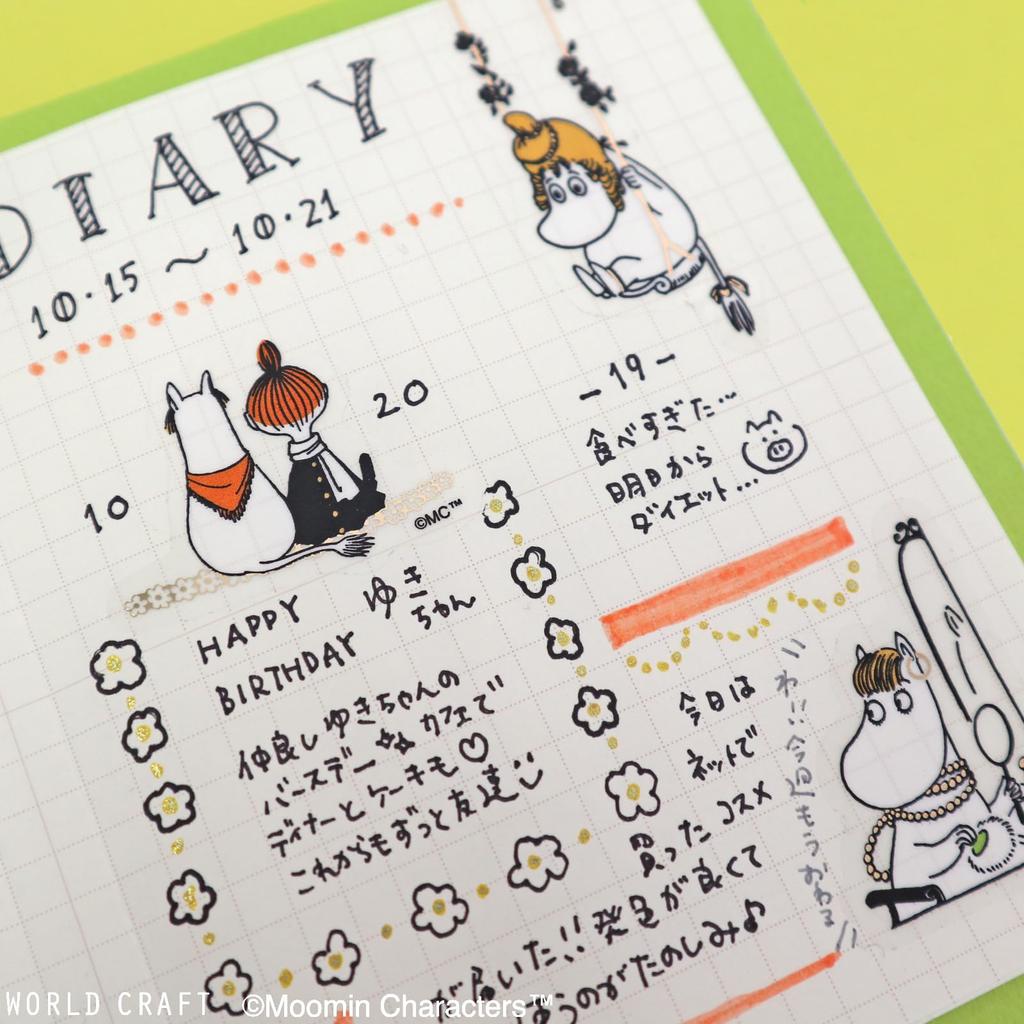 DIARY
10·15 〜 10·21
10
20
©MC™
HAPPY
BIRTHDAY
ゆき
ちゃん
仲良しゆきちゃんの
バースデー カフェで
ディナーとケーキも♡
これからもずっと友達
- 19 -
食べすぎた…
明日から
ダイエット...
今日は
ネットで
買ったコスメ
が届いた!! 発色が良くて
うのがたのしみ♪
わ!! 今週もうおわる
WORLD CRAFT ©Moomin Characters™